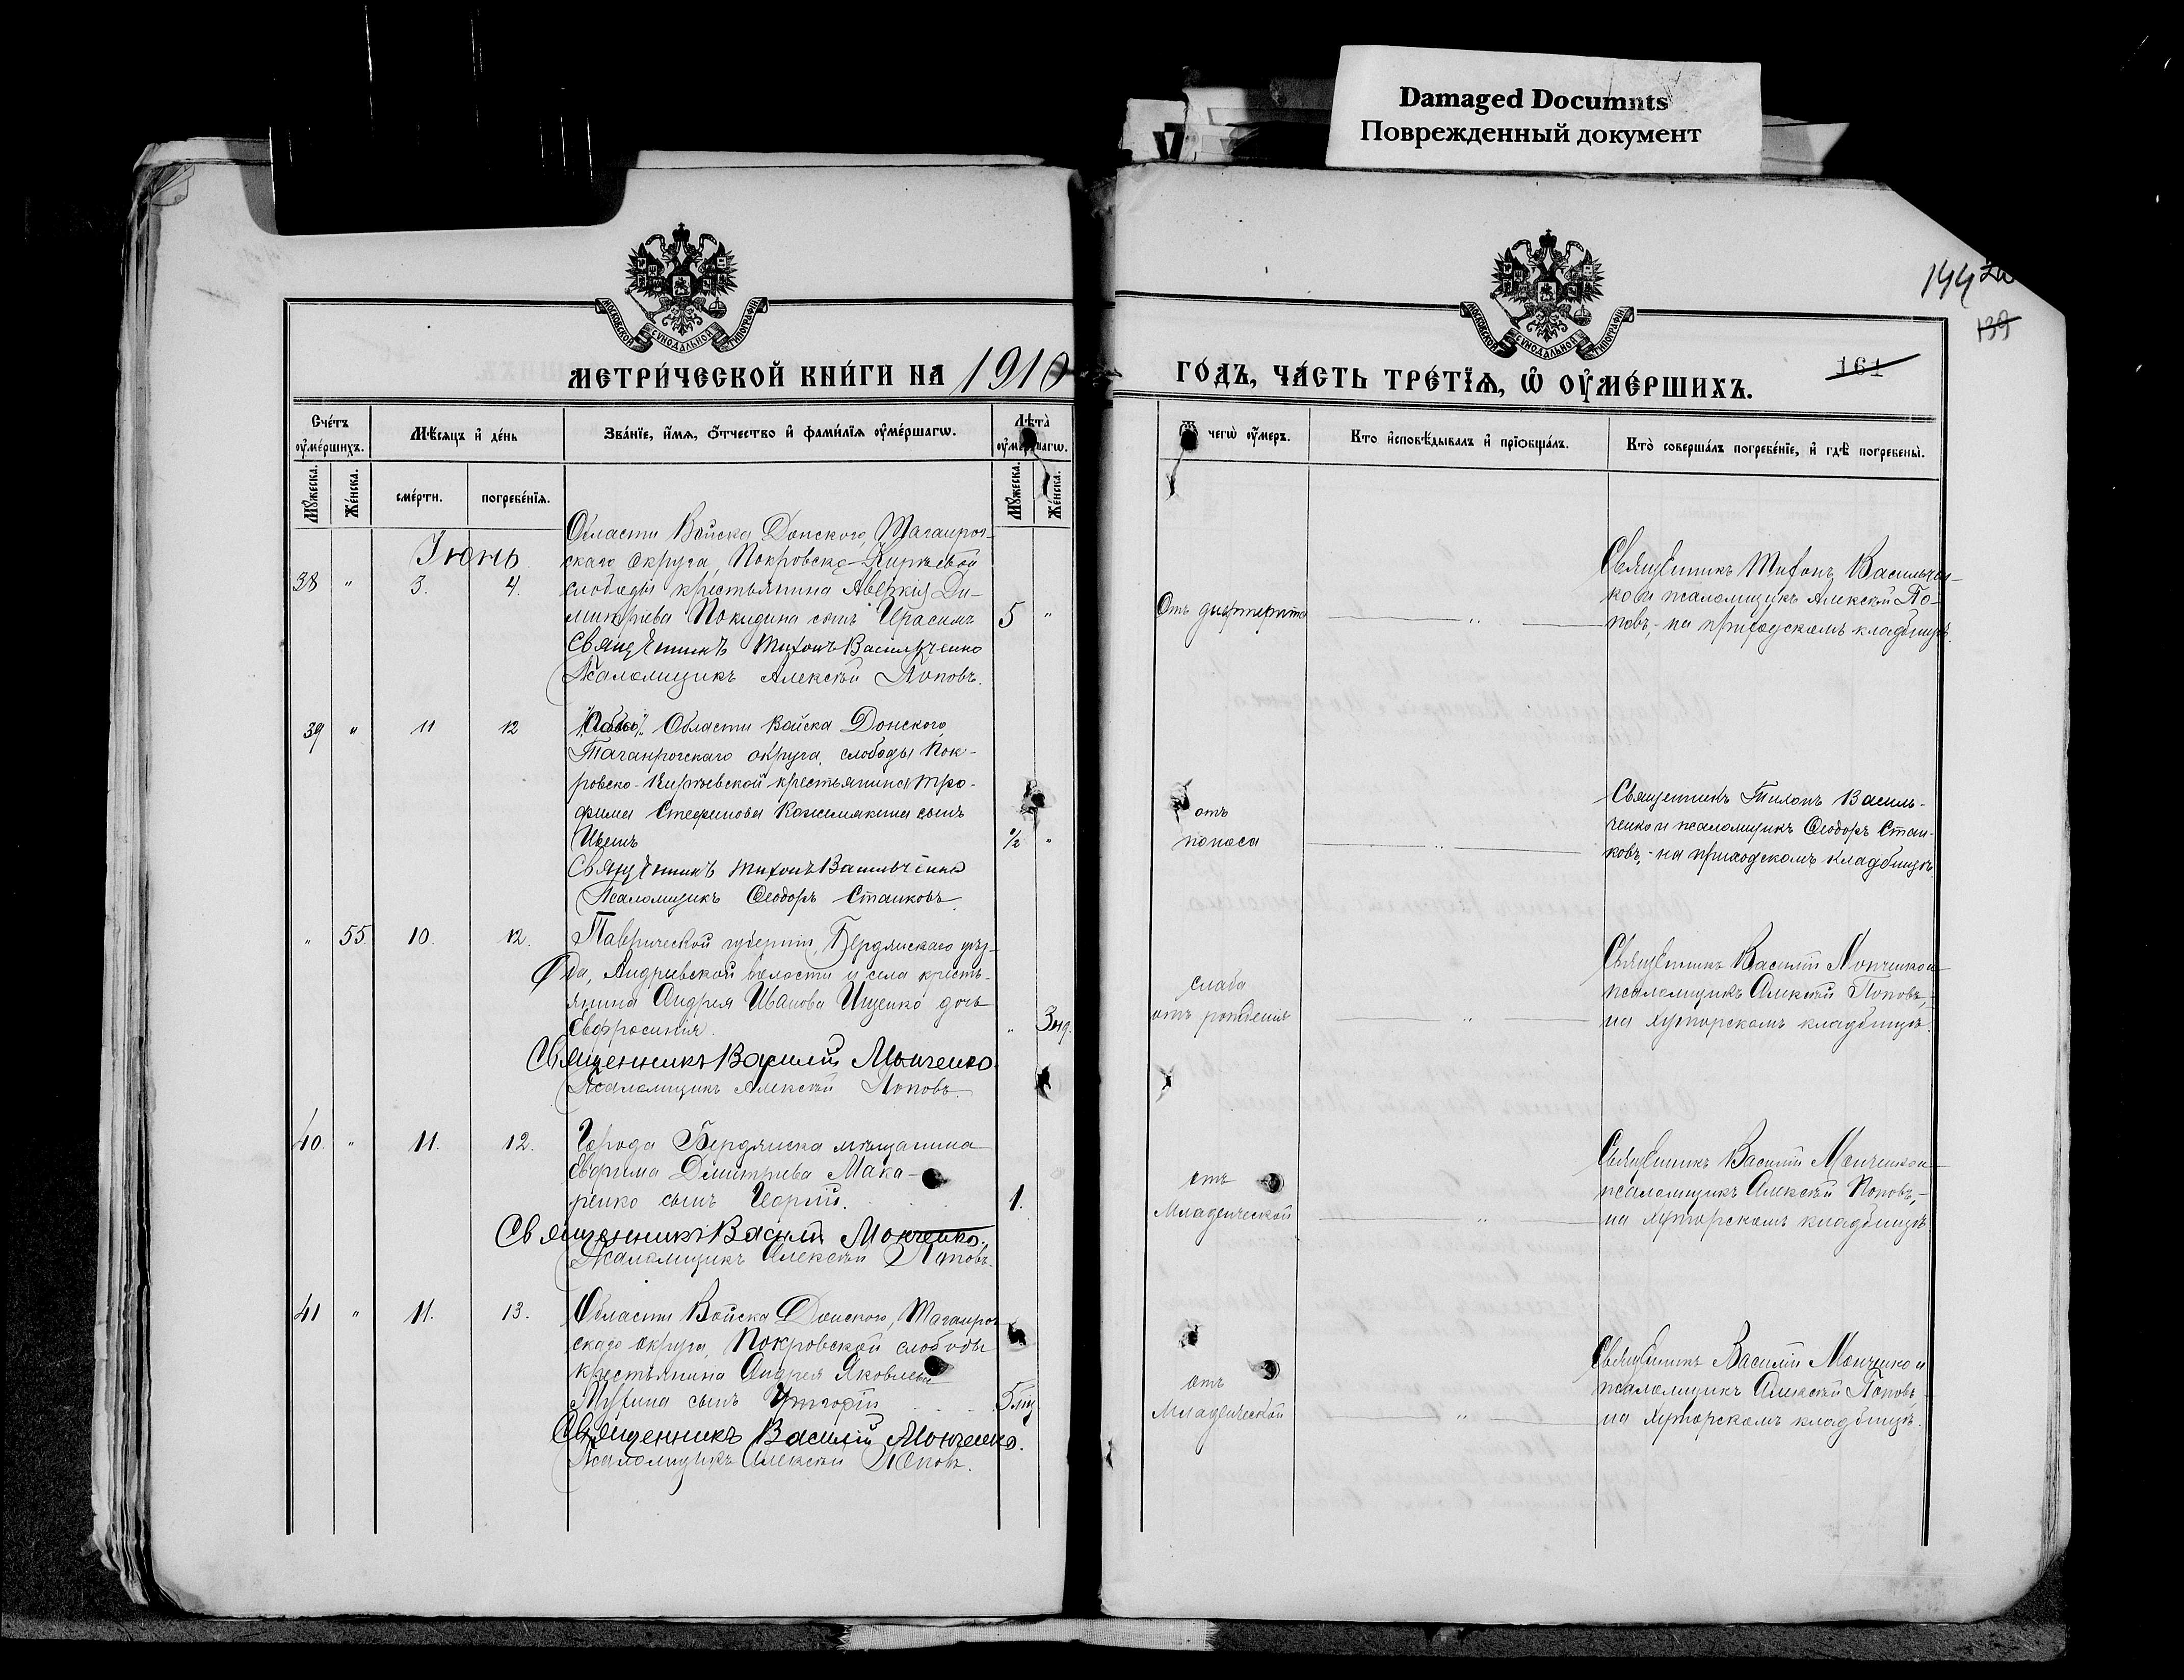 Damaged Documnts
Поврежденный документ
МОСКОВСКОЙ СѴНОДАЛЬНОЙ ТИПОГРАФІИ
МОСКОВСКОЙ СѴНОДАЛЬНОЙ ТИПОГРАФІИ
144
139
161
МЕТРИ́ЧЕСКОЙ КНИ́ГИ НА 1910
ГО́ДЪ, ЧА́СТЬ ТРЕ́ТЇѦ, Ѡ҆ ОУ҆МЕ́РШИХЪ.
Сче́тъ оу҆ме́ршихъ.
Мꙋ́жеска.
Же́нска.
Мѣ́сѧцъ и҆ де́нь
сме́рти.
погребе́нїѧ.
Зва́нїе, и҆́мѧ, ѻ҆́тчество и҆ фами́лїѧ оу҆ме́ршагѡ.
Лѣ́та̀ оу҆ме́ршагѡ.
Мꙋ́жеска.
Же́нска.
Ѿ чегѡ̀ оу҆́меръ.
Кто̀ и҆сповѣ́дывалъ и҆ прїѡбща́лъ.
Кто̀ соверша́лъ погребе́нїе, и҆ гдѣ̀ погребены̀.
Іюнь
38 " 3. 4.
Области Войска Донского, Таганрог-
скаго округа, Покровско-Кирѣевой
слободы крестьянина Аверкія Ди-
митріева Покидина сынъ Герасимъ
5 "
Священникъ Тихонъ Васильченко
Псаломщикъ Алексѣй Поповъ.
Отъ дифтерита
Священникъ Тихонъ Васильчен-
ко и псаломщикъ Алексѣй По-
повъ,- на приходскомъ кладбищѣ.
39 " 11 12
Области Войска Донского,
Таганрогскаго округа, слободы Пок-
ровско-Кирѣевской крестьянина Тро-
фима Стефанова Кожемякина сынъ
½ "
Священникъ Тихонъ Васильченко
Псаломщикъ Ѳеодоръ Станковъ.
отъ
поноса
Священникъ Тихонъ Василь-
ченко и псаломщикъ Ѳеодоръ Стан-
ковъ,- на приходскомъ кладбищѣ.
" 55. 10. 12.
Таврической губерніи, Бердянскаго уѣз-
да, Андреевской волости и села кресть-
янина Андрея Иванова Ищенко дочь
Евфросинія.
" 3 нд.
Священникъ Василій Монченко.
Псаломщикъ Алексѣй Поповъ.
слаба
отъ рожденія
Священникъ Василій Монченко и
псаломщикъ Алексѣй Поповъ,-
на хуторскомъ кладбищѣ.
40. " 11. 12.
Города Бердянска мѣщанина
Евфима Димитріева Мака-
ренко сынъ Георгій.
1.
Священникъ Василій Монченко.
Псаломщикъ Алексѣй Поповъ.
отъ
младенческой
Священникъ Василій Монченко и
псаломщикъ Алексѣй Поповъ,-
на хуторскомъ кладбищѣ
41 " 11. 13.
Области Войска Донского, Таганрог-
скаго округа, Покровской слободы
крестьянина Андрея Яковлева
сынъ Григорій
5 мц
Священникъ Василій Монченко.
Псаломщикъ Алексѣй Поповъ.
отъ
младенческой
Священникъ Василій Монченко и
псаломщикъ Алексѣй Поповъ,
на хуторскомъ кладбищѣ.